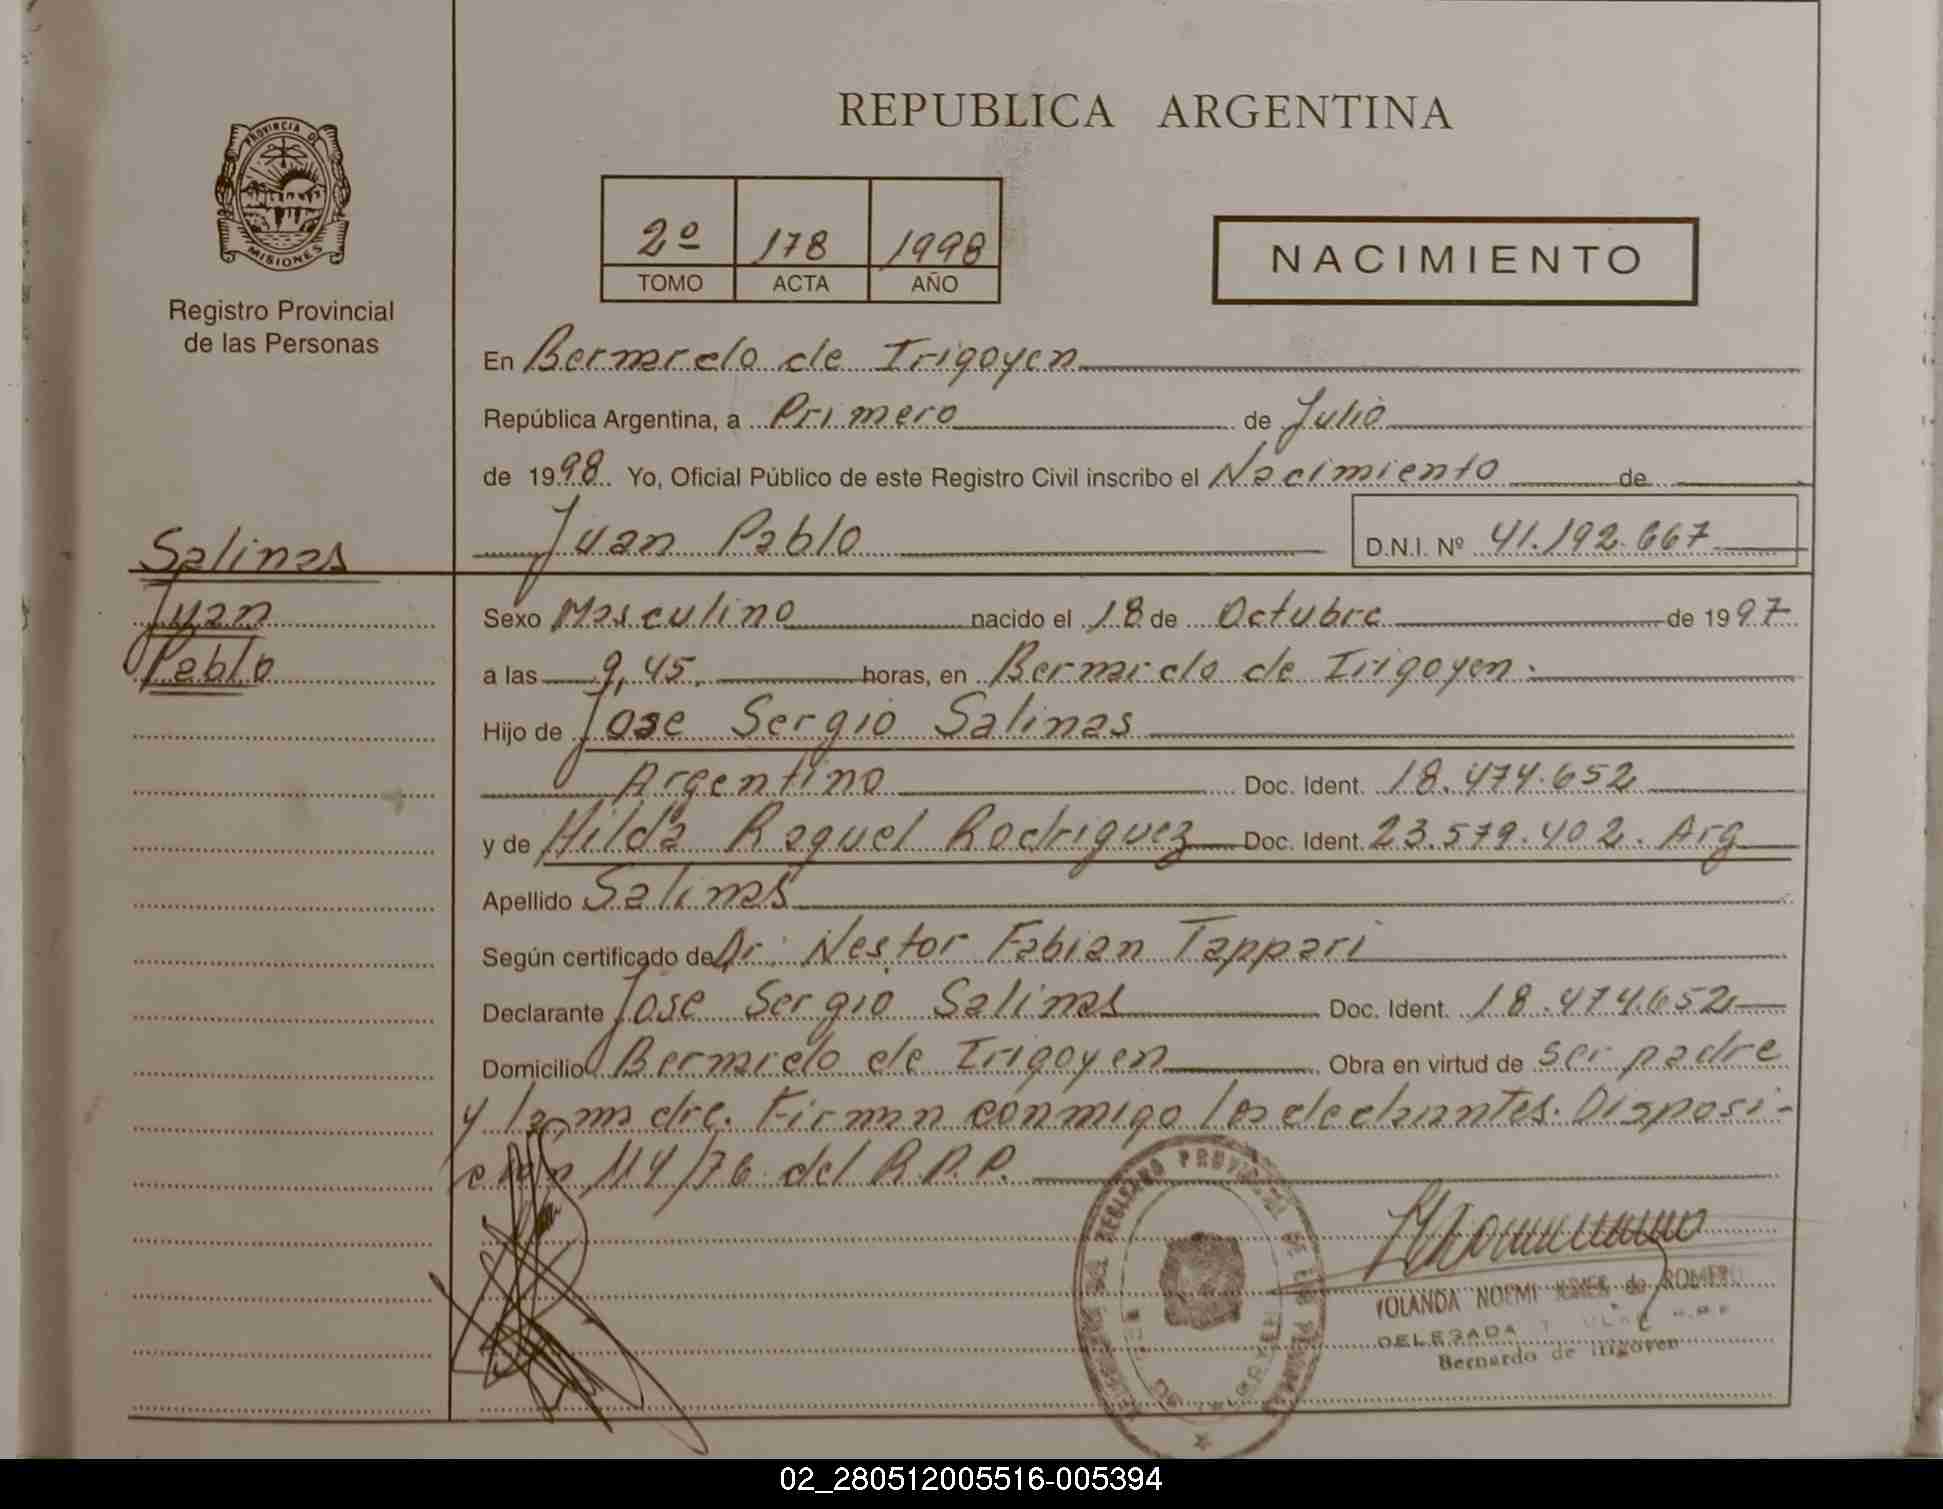 REPUBLICA ARGENTINA
PROVINCIA DE
MISIONES
Registro Provincial
de las Personas
2º 178 1998
TOMO ACTA AÑO
NACIMIENTO
En Bernardo de Irigoyen
República Argentina, a Primero de Julio
de 1998. Yo, Oficial Público de este Registro Civil inscribo el Nacimiento de
Juan Pablo D.N.I. Nº 41.192.667
Salinas
Juan
Pablo
Sexo Masculino nacido el 18 de Octubre de 1997
a las 9,45. horas, en Bernardo de Irigoyen.
Hijo de Jose Sergio Salinas
Argentino Doc. Ident. 18.474.652
y de Hilda Raquel Rodriguez Doc. Ident. 23.579.402. Arg
Apellido Salinas
Según certificado de Dr. Nestor Fabian Tappari
Declarante Jose Sergio Salinas Doc. Ident. 18.474.652
Domicilio Bernardo de Irigoyen Obra en virtud de ser padre
y la madre. Firman conmigo los declarantes. Disposi-
cion 114/76 del R.P.P.
YOLANDA NOEMI de ROMERO
DELEGADA
Bernardo de Irigoyen
02_280512005516-005394